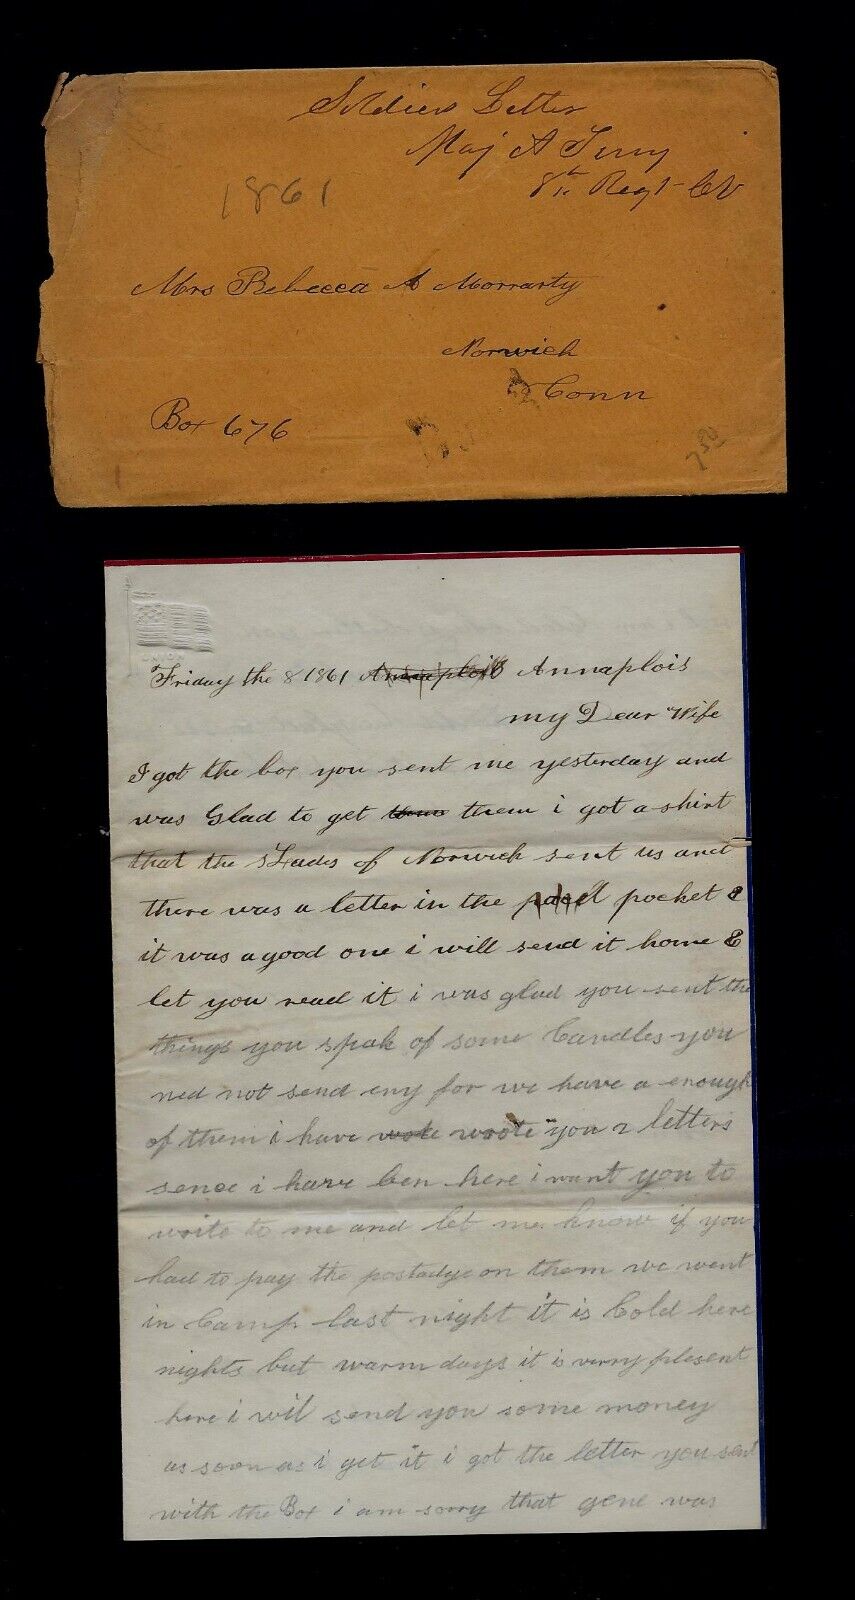 Soldiers Letter
Maj A Terry
8th Regt CV
1861
Mrs Rebecca A Morrarty
Norwich
Conn
Box 676
750
Friday the 8 1861 Annaplois Annaplois
my Dear Wife
I got the box you sent me yesterday and
was Glad to get them them i got a shirt
that the Lades of Norwich sent us and
there was a letter in the pocket &
it was a good one i will send it home &
let you read it i was glad you sent the
things you spak of some Candles you
ned not send eny for we have a enough
of them i have wrote you 2 letters
sence i have ben here i want you to
write to me and let me know if you
had to pay the postadge on them we went
in Camp last night it is Cold here
nights but warm days it is verry plesent
here i wil send you some money
as soon as i get it i got the letter you sent
with the Box i am sorry that gene was